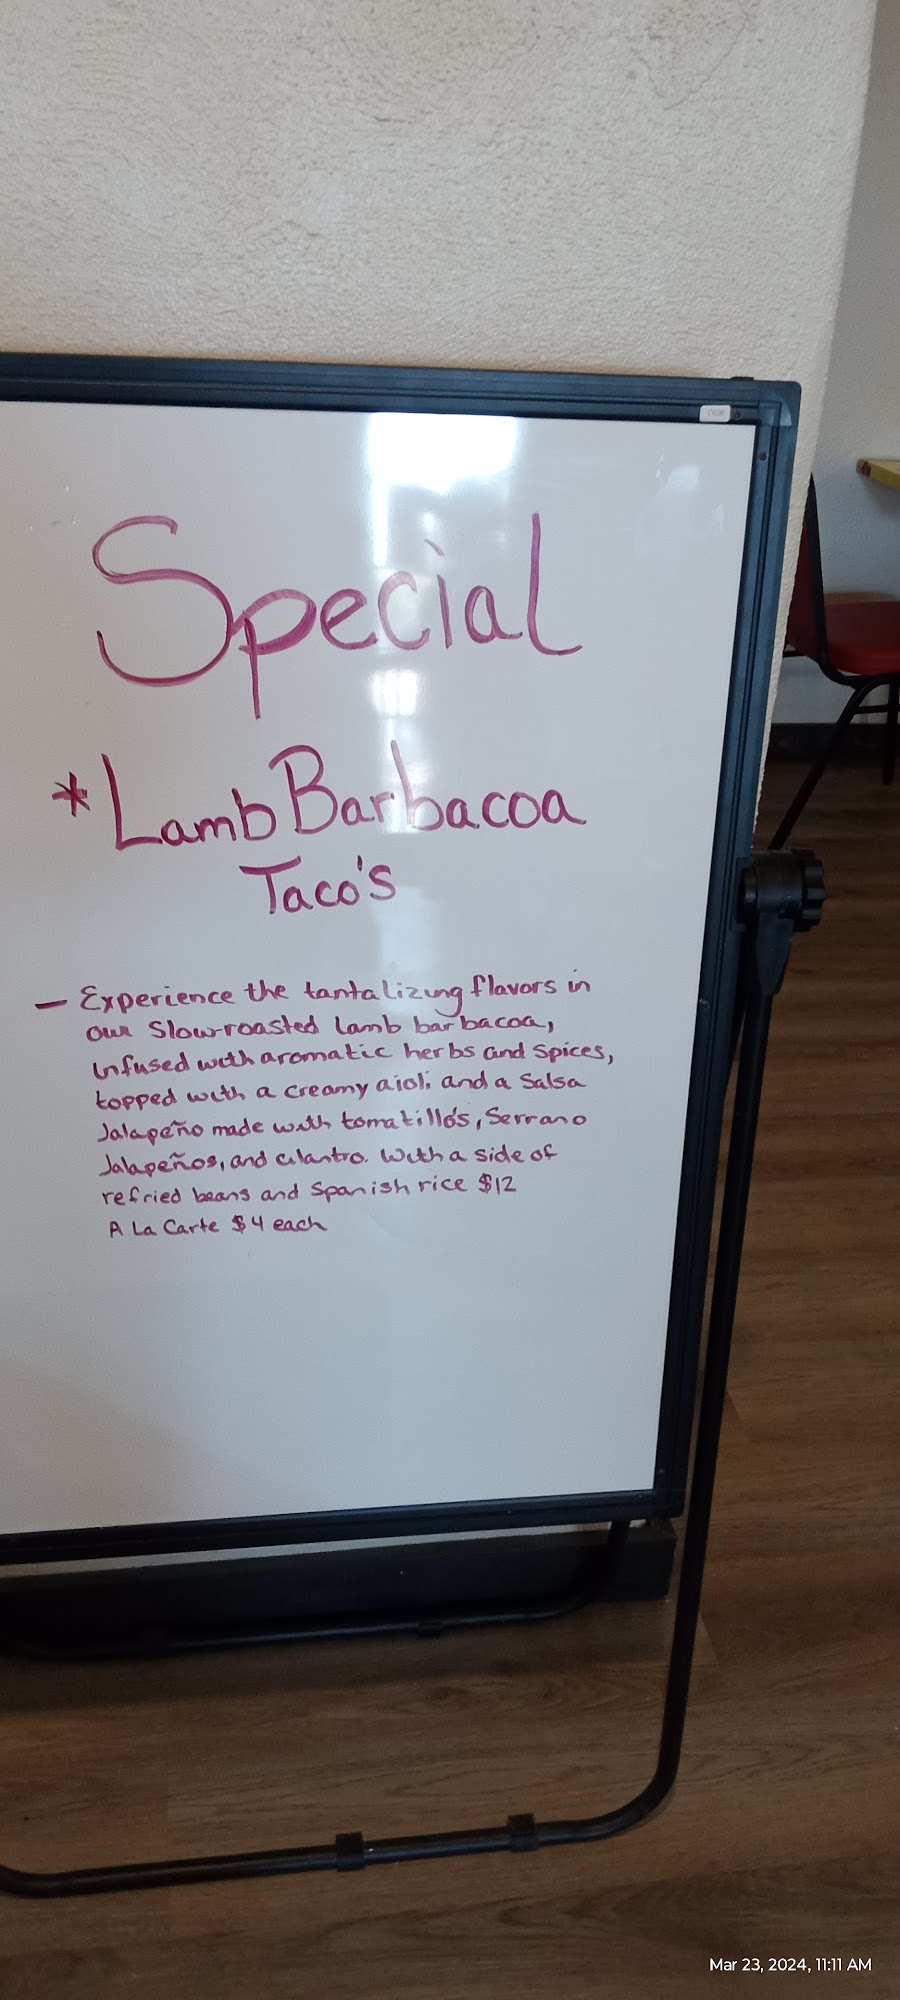 Special
*Lamb Barbacoa
Taco's
— Experience the tantalizing flavors in
our Slow-roasted lamb barbacoa,
infused with aromatic herbs and spices,
topped with a creamy aioli and a Salsa
Jalapeño made with tomatillo's, Serrano
Jalapeños, and cilantro. With a side of
refried beans and Spanish rice $12
A La Carte $4 each
Mar 23, 2024, 11:11 AM